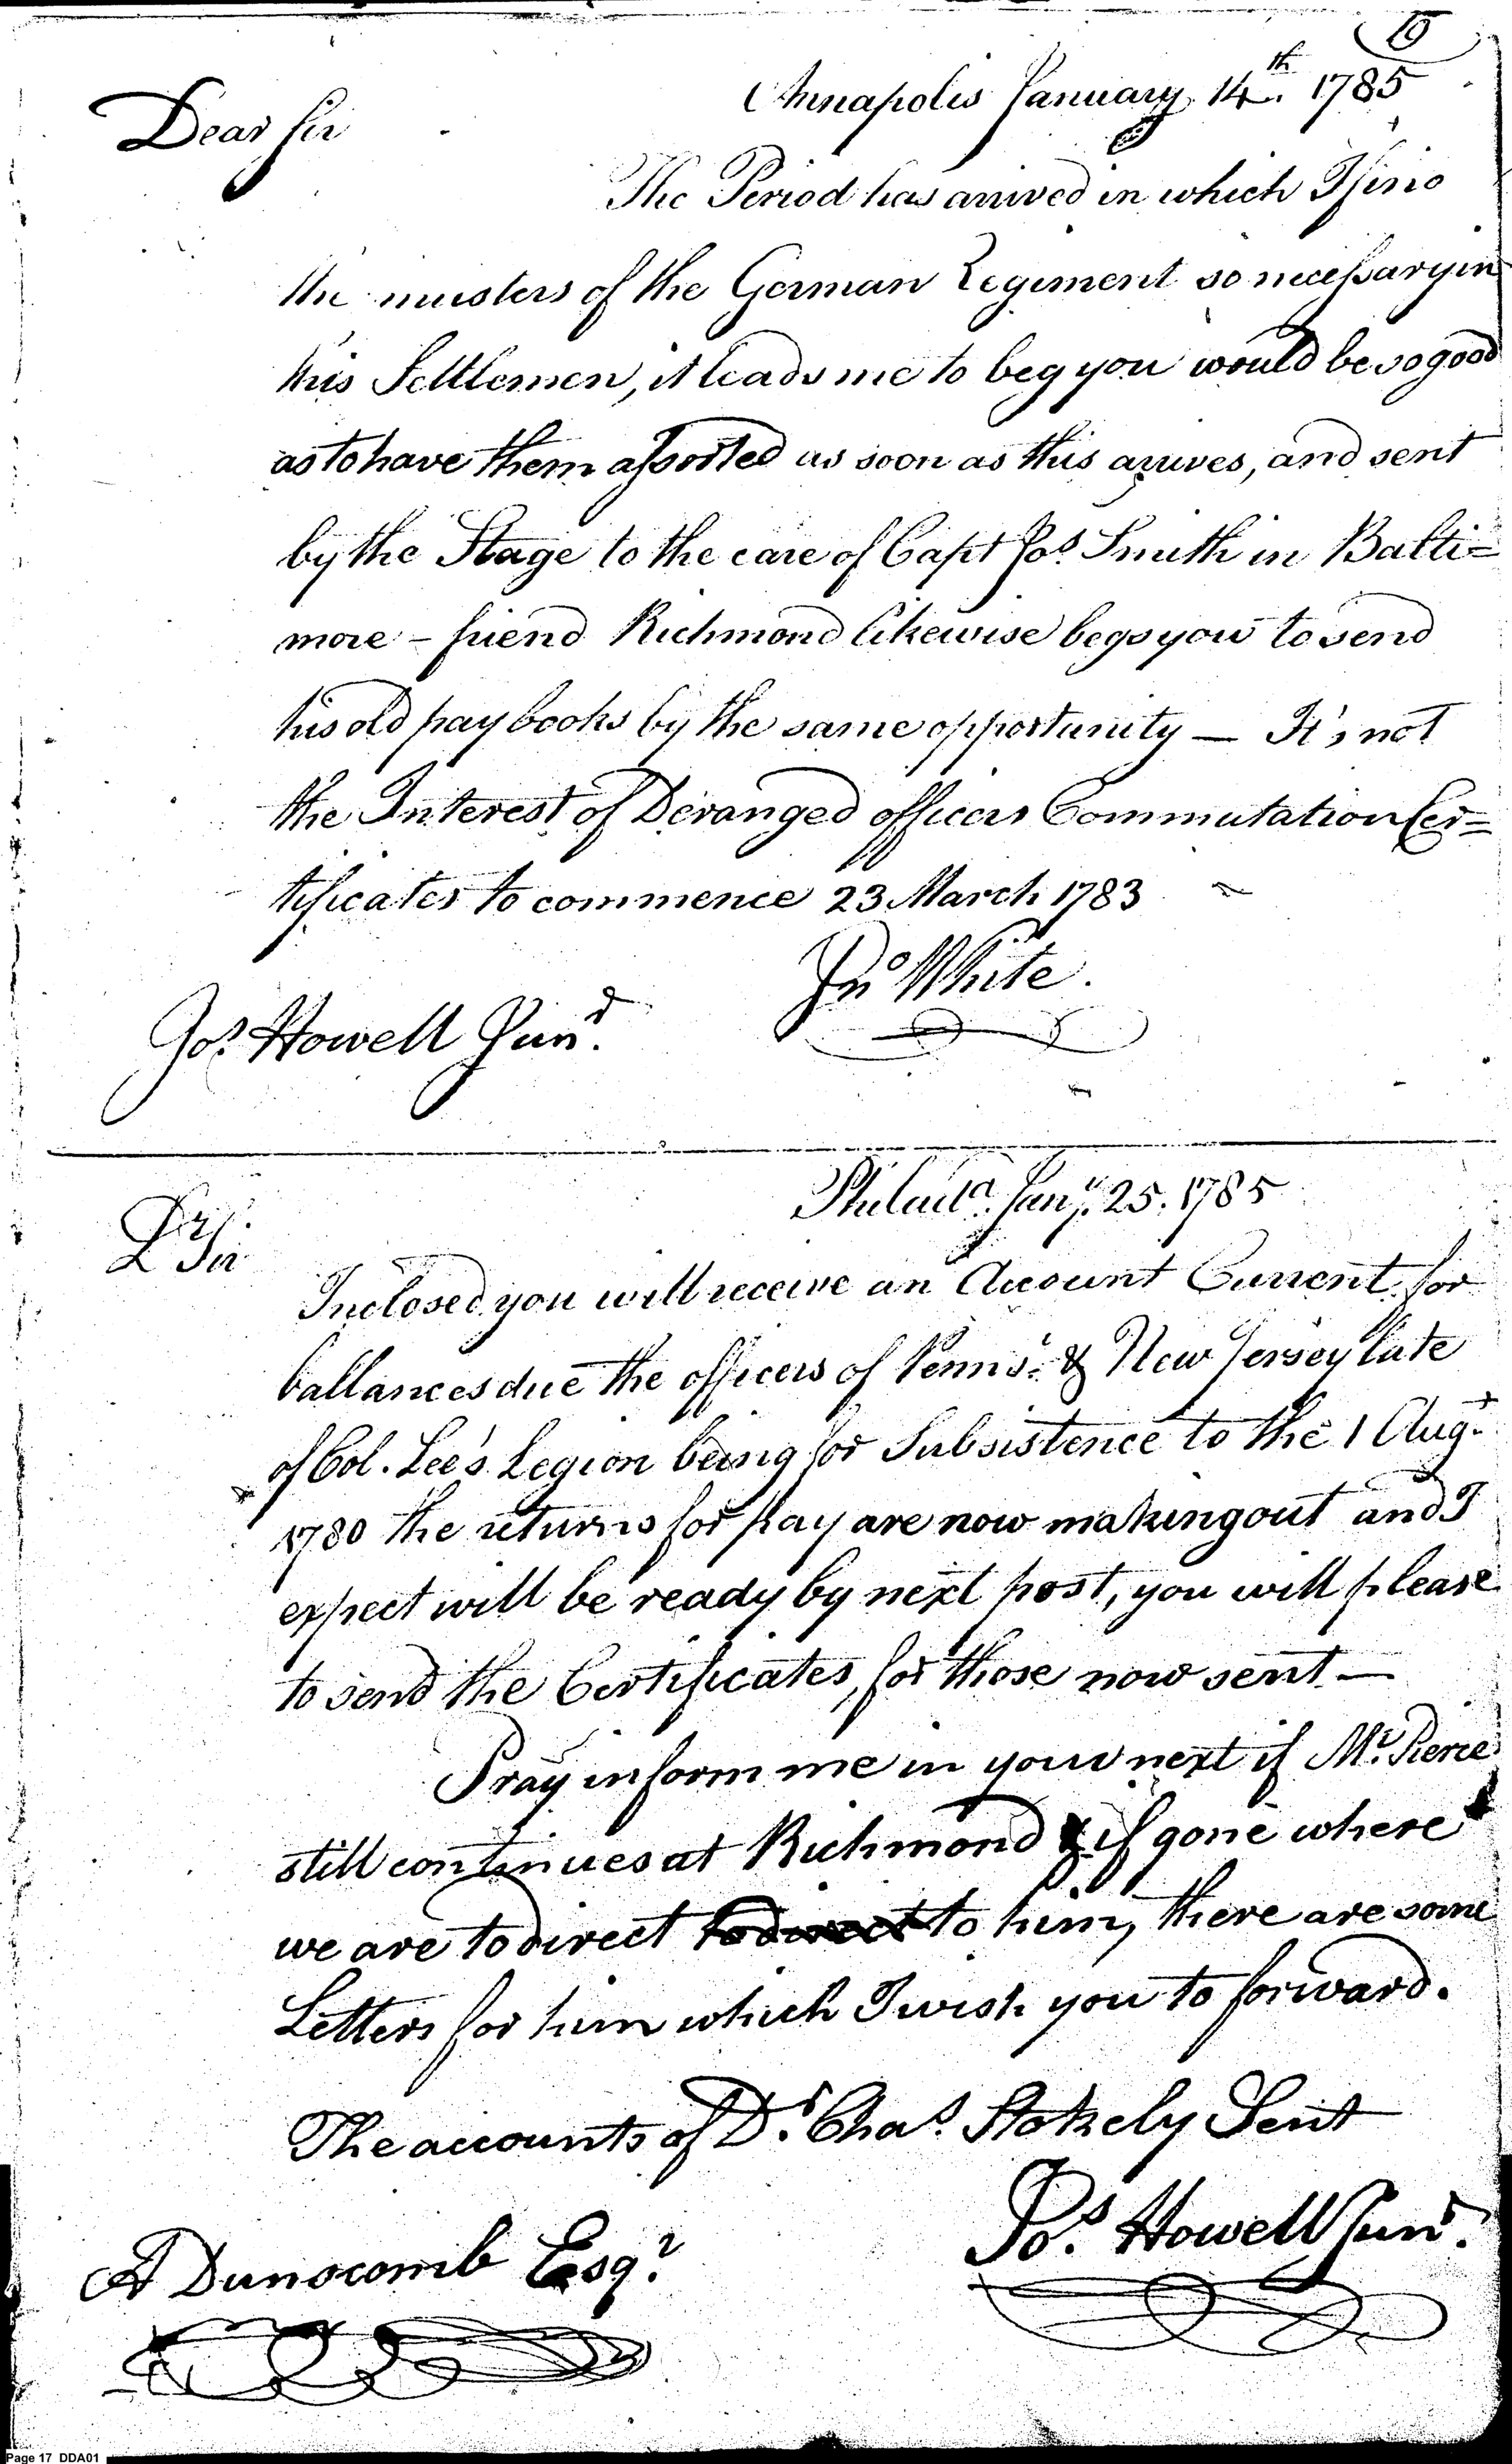 15
Annapolis January 14th. 1785
Dear Sir
The Period has arrived in which I find
the musters of the German Regiment so necessary in
this Settlemen, it leads me to beg you would be so good
as to have them assorted as soon as this arrives, and sent
by the Stage to the care of Capt Jos. Smith in Balti=
more - friend Richmond likewise begs you to send
his old pay books by the same opportunity — It's not
the Interest of Deranged officers Commutation Cer=
tificates to commence 23 March 1783
Jno White.
Jos. Howell Junr.
Philada. Jany. 25. 1785
Dr Sir
Inclosed you will receive an Account Current for
ballances due the officers of Penns. & New Jersey late
of Col. Lee's Legion being for Subsistence to the 1 Augt.
1780 the returns for pay are now making out and I
expect will be ready by next post, you will please
to send the Certificates, for those now sent —
Pray inform me in your next if Mr. Pierce
still continues at Richmond & if gone where
we are to direct to direct to him, there are some
Letters for him which I wish you to forward.
The accounts of Dr. Chas. Stokely Sent
Jos. Howell Junr.
A Dunscomb Esqr.
Page 17 DDA01